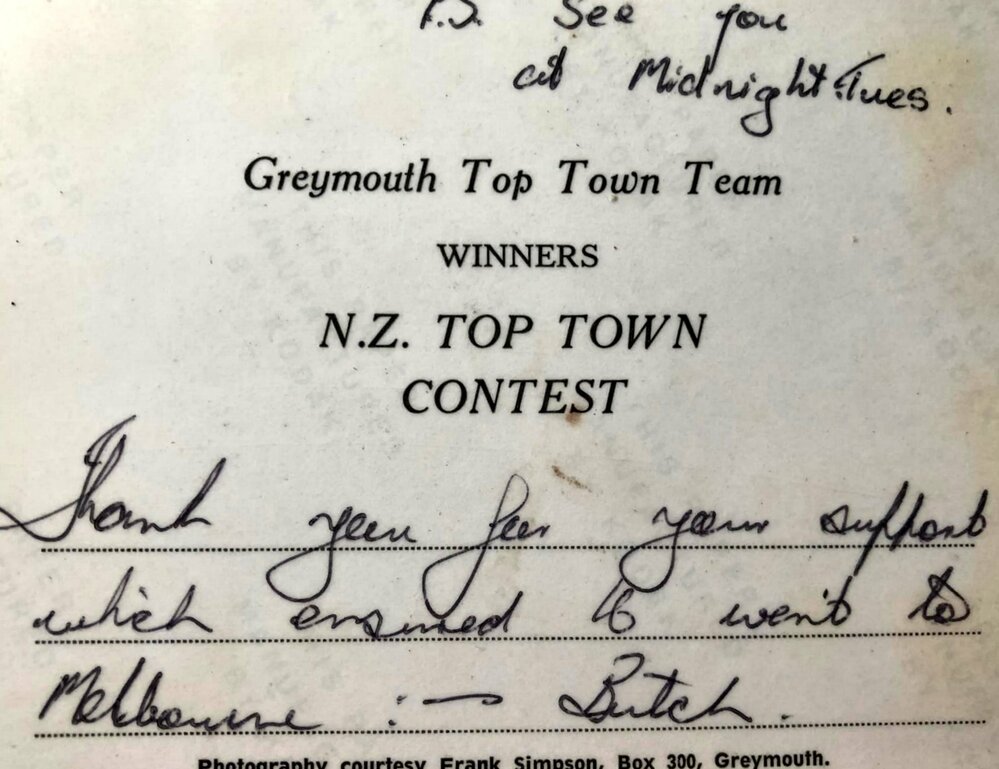 P.S. See you
at Midnight Tues.
Greymouth Top Town Team
WINNERS
N.Z. TOP TOWN
CONTEST
Thank you for your support
which ensured 16 went to
Melbourne :— Butch.
Photography courtesy Frank Simpson, Box 300, Greymouth.